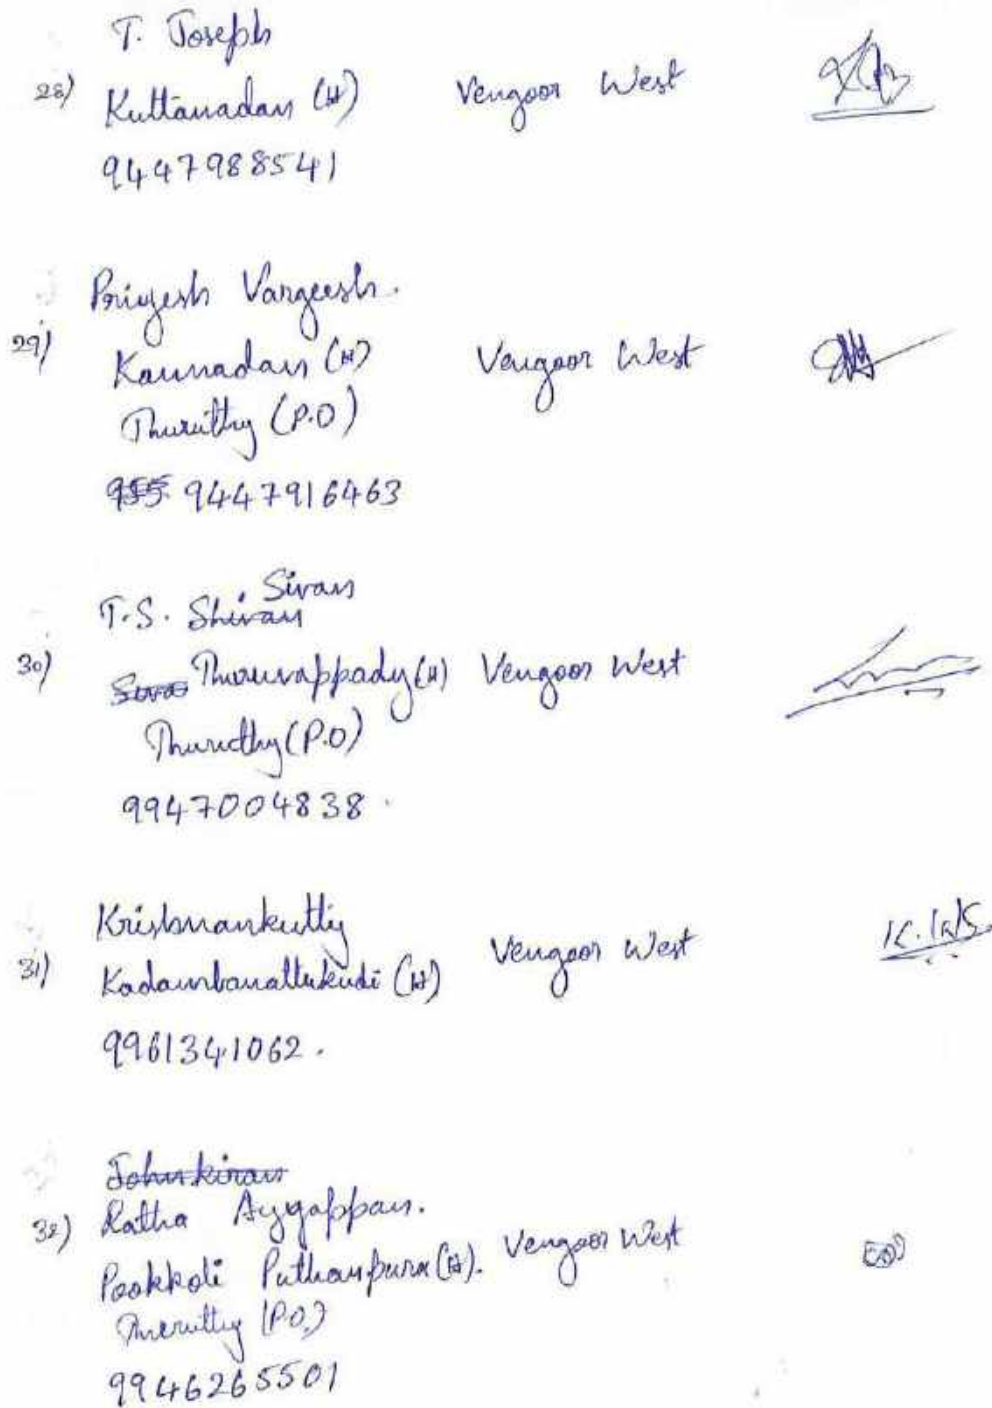 T. Joseph
28) Kuttanadan (H) Vengoor West
9447988541
Priyesh Vargeesh.
29) Kannadan (H) Vengoor West
Thuruthy (P.O)
955 9447916463
Sivan
T.S. Shivan
30) Siva Thuruvappady (H) Vengoor West
Thuruthy (P.O)
9947004838.
Krishnankutty
31) Kadambanattukudi (H) Vengoor West K.K.S
9961341062.
Johnkiran
32) Ratha Ayyappan.
Pookkoli Puthanpura (H). Vengoor West
Thuruthy (P.O.)
9946265501